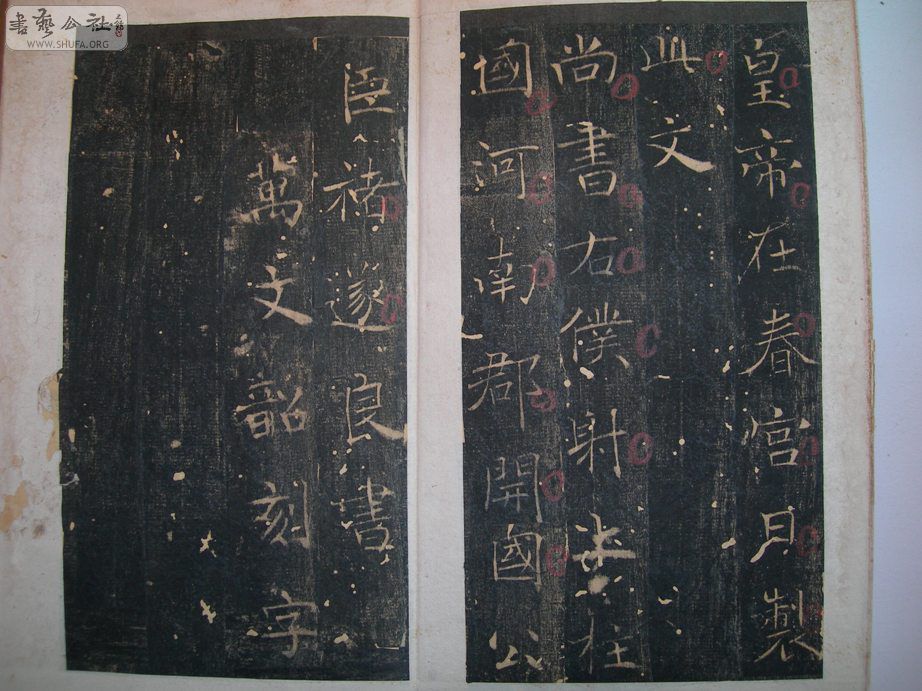 皇帝在春宮日製
此文
尚書右僕射上柱
國河南郡開國公
臣褚遂良書
萬文韶刻字
書藝公社
WWW.SHUFA.ORG